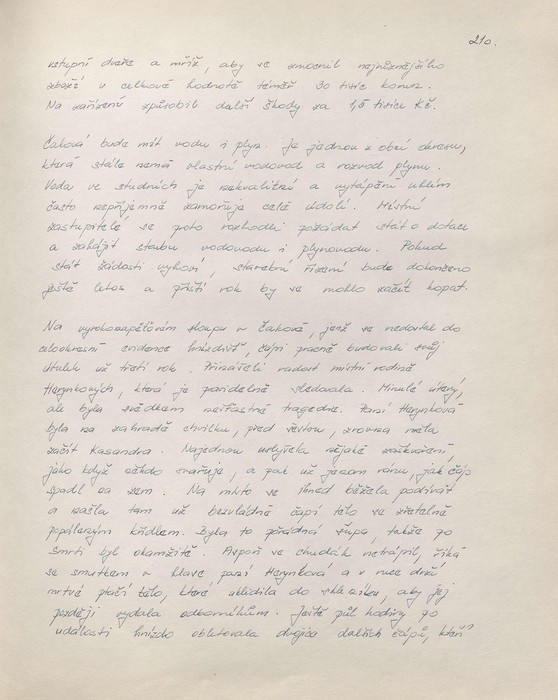 210.
vstupní dveře a mříž, aby se zmocnil nejrůznějšího
zboží v celkové hodnotě téměř 30 tisíc korun.
Na zařízení způsobil další škody za 1,5 tisíce Kč.
Čaková bude mít vodu i plyn. Je jednou z obcí okresu,
která stále nemá vlastní vodovod a rozvod plynu.
Voda ve studních je nekvalitní a vytápění uhlím
často nepříjemně zamořuje celé údolí. Místní
zastupitelé se proto rozhodli požádat stát o dotaci
a zahájit stavbu vodovodu i plynovodu. Pokud
stát žádosti vyhoví, stavební řízení bude dokončeno
ještě letos a příští rok by se mohlo začít kopat.
Na vysokonapěťovém sloupu v Čakové, jenž se nedostal do
celookresní evidence hnízdišť, čápi pracně budovali svůj
útulek už třetí rok. Přinášeli radost místní rodině
Herynkových, která je pravidelně sledovala. Minulé úterý,
ale byla svědkem nešťastné tragedie. Paní Herynková
byla na zahradě chvilku, před šestou, zrovna měla
začít Kasandra. Najednou uslyšela nějaké zajiskření,
jako když někdo svařuje, a pak už jenom ránu, jak čáp
spadl na zem. Na místo se ihned běžela podívat
a našla tam už bezvládné čapí tělo se zřetelně
popáleným křídlem. Byla to pořádná šupa, takže po
smrti byl okamžitě. Aspoň se chudák netrápil, říká
se smutkem v hlase, paní Herynková a v ruce drží
mrtvé ptačí tělo, které uklidila do skleníku, aby jej
později vydala odborníkům. Ještě půl hodiny po
události hnízdo obletovala dvojice dalších čápů, kteří